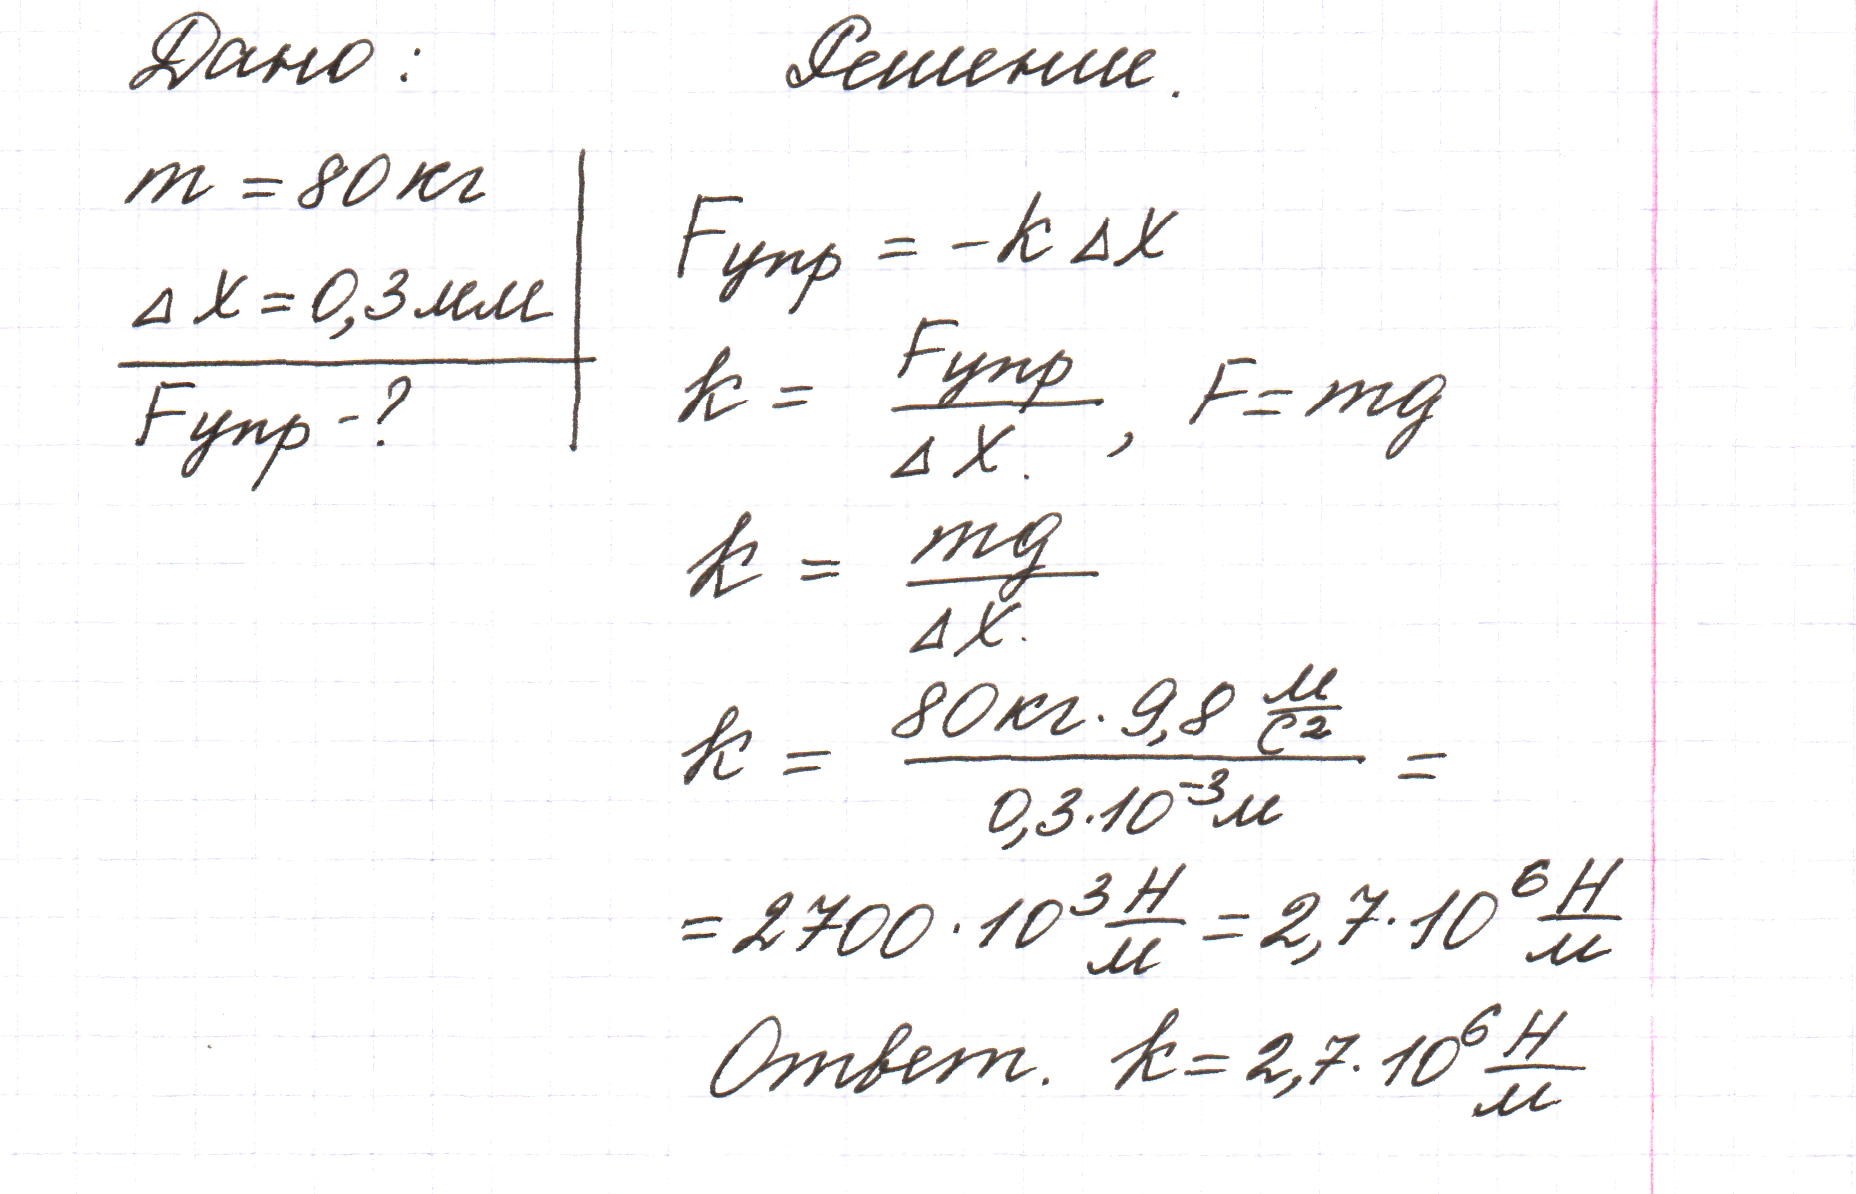 Дано:
m = 80 кг
Δx = 0,3 мм
Fупр - ?
Решение.
Fупр = -k Δx
k = Fупр / Δx. , F = mg
k = mg / Δx.
k = 80 кг · 9,8 м/с² / 0,3·10⁻³ м =
= 2700 · 10³ Н/м = 2,7 · 10⁶ Н/м
Ответ. k = 2,7 · 10⁶ Н/м